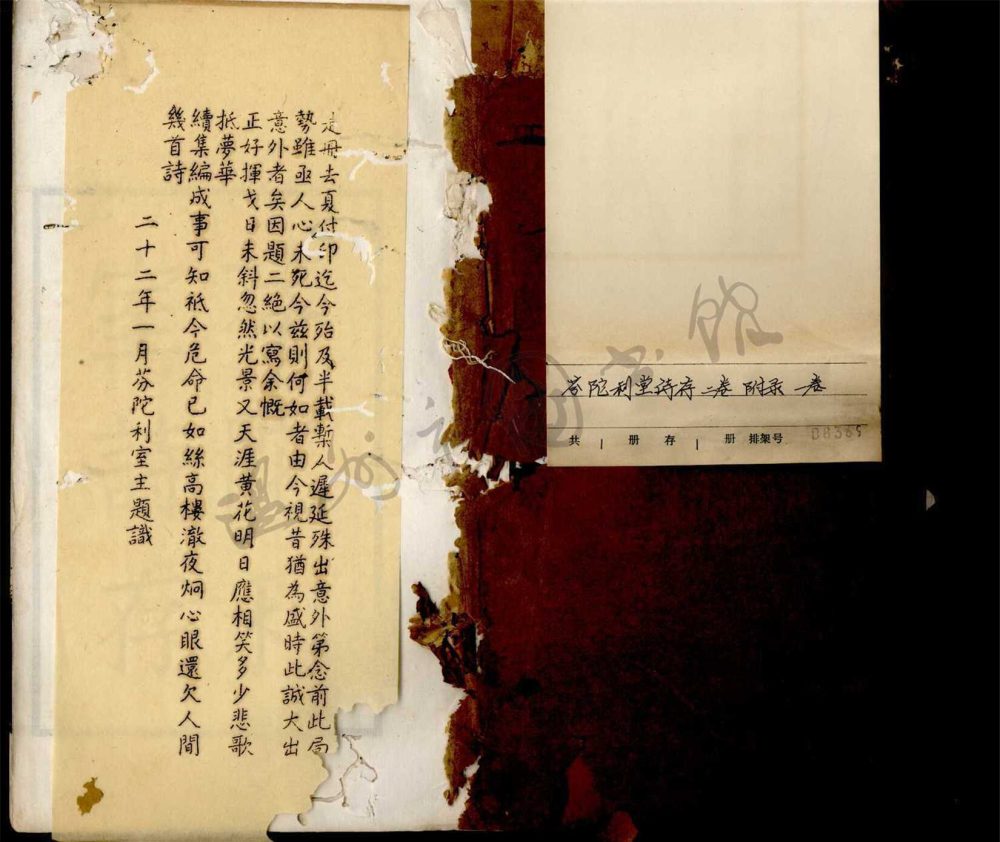 是冊去夏付印迄今殆及半載槧人遲延殊出意外第念前此局
勢雖亟人心未死今茲則何如者由今視昔猶為盛時此誠大出
意外者矣因題二絕以寫余慨
正好揮戈日未斜忽然光景又天涯黃花明日應相笑多少悲歌
抵夢華
續集編成事可知祗今危命已如絲高樓澈夜炯心眼還欠人間
幾首詩
二十二年一月芬陀利室主題識
芬陀利室诗存二卷 附录一卷
共 1 册 存 1 册 排架号
温州市图书馆